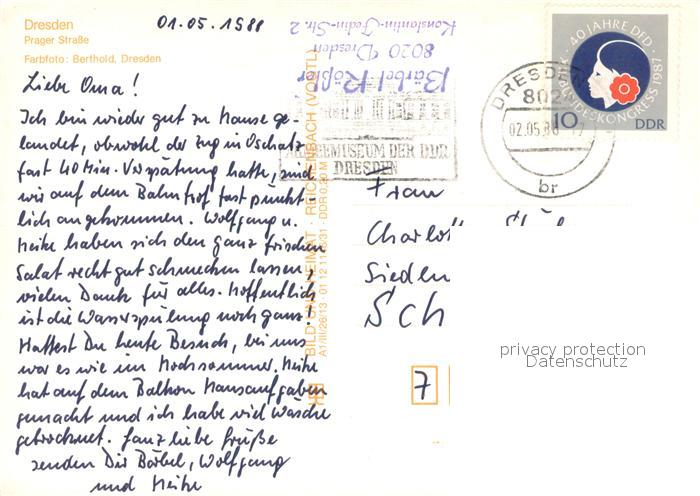 Dresden
Prager Straße
Farbfoto: Berthold, Dresden
01.05.1988
Liebe Oma!
Ich bin wieder gut zu Hause ge-
landet, obwohl der Zug in Oschatz
fast 40 Min. Verspätung hatte, sind
wir auf dem Bahnhof fast pünkt-
lich angekommen. Wolfgang u.
Heike haben sich den ganz frischen
Salat recht gut schmecken lassen,
vielen Dank für alles. Hoffentlich
ist die Wasserspülung noch ganz.
Hattest Du heute Besuch, bei uns
war es wie im Hochsommer. Heike
hat auf dem Balkon Hausaufgaben
gemacht und ich habe viel Wäsche
getrocknet. Ganz liebe Grüße
senden Dir Bärbel, Wolfgang
und Heike
BILD UND HEIMAT · REICHENBACH (VOGTL)
A1/III/26/13 01 12 11 DDR 0,20 M
Bärbel Rößler
8020 Dresden
Konstantin-Fedin-Str. 2
ARMEEMUSEUM DER DDR
DRESDEN
DRESDEN
802
02.05.88
br
40 JAHRE DFD
BUNDESKONGRESS 1987
10
DDR
Frau
Charlott
Sieden
Sch
7
privacy protection
Datenschutz